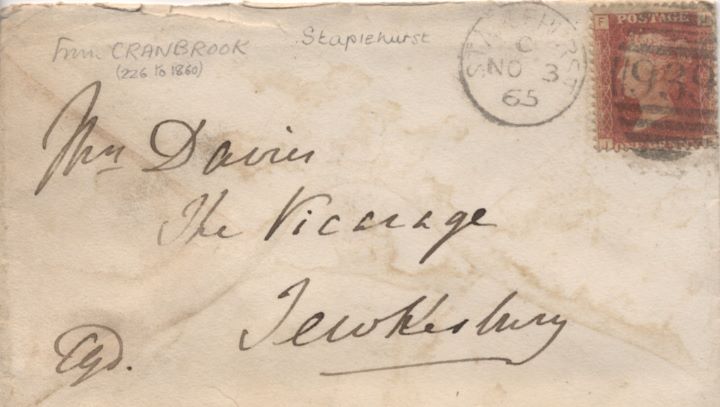 From CRANBROOK
(226 to 1860)
Staplehurst
STAPLEHURST
C
NO 3
65
F
POSTAGE
939
Mrs Davies
The Vicarage
Tewkesbury